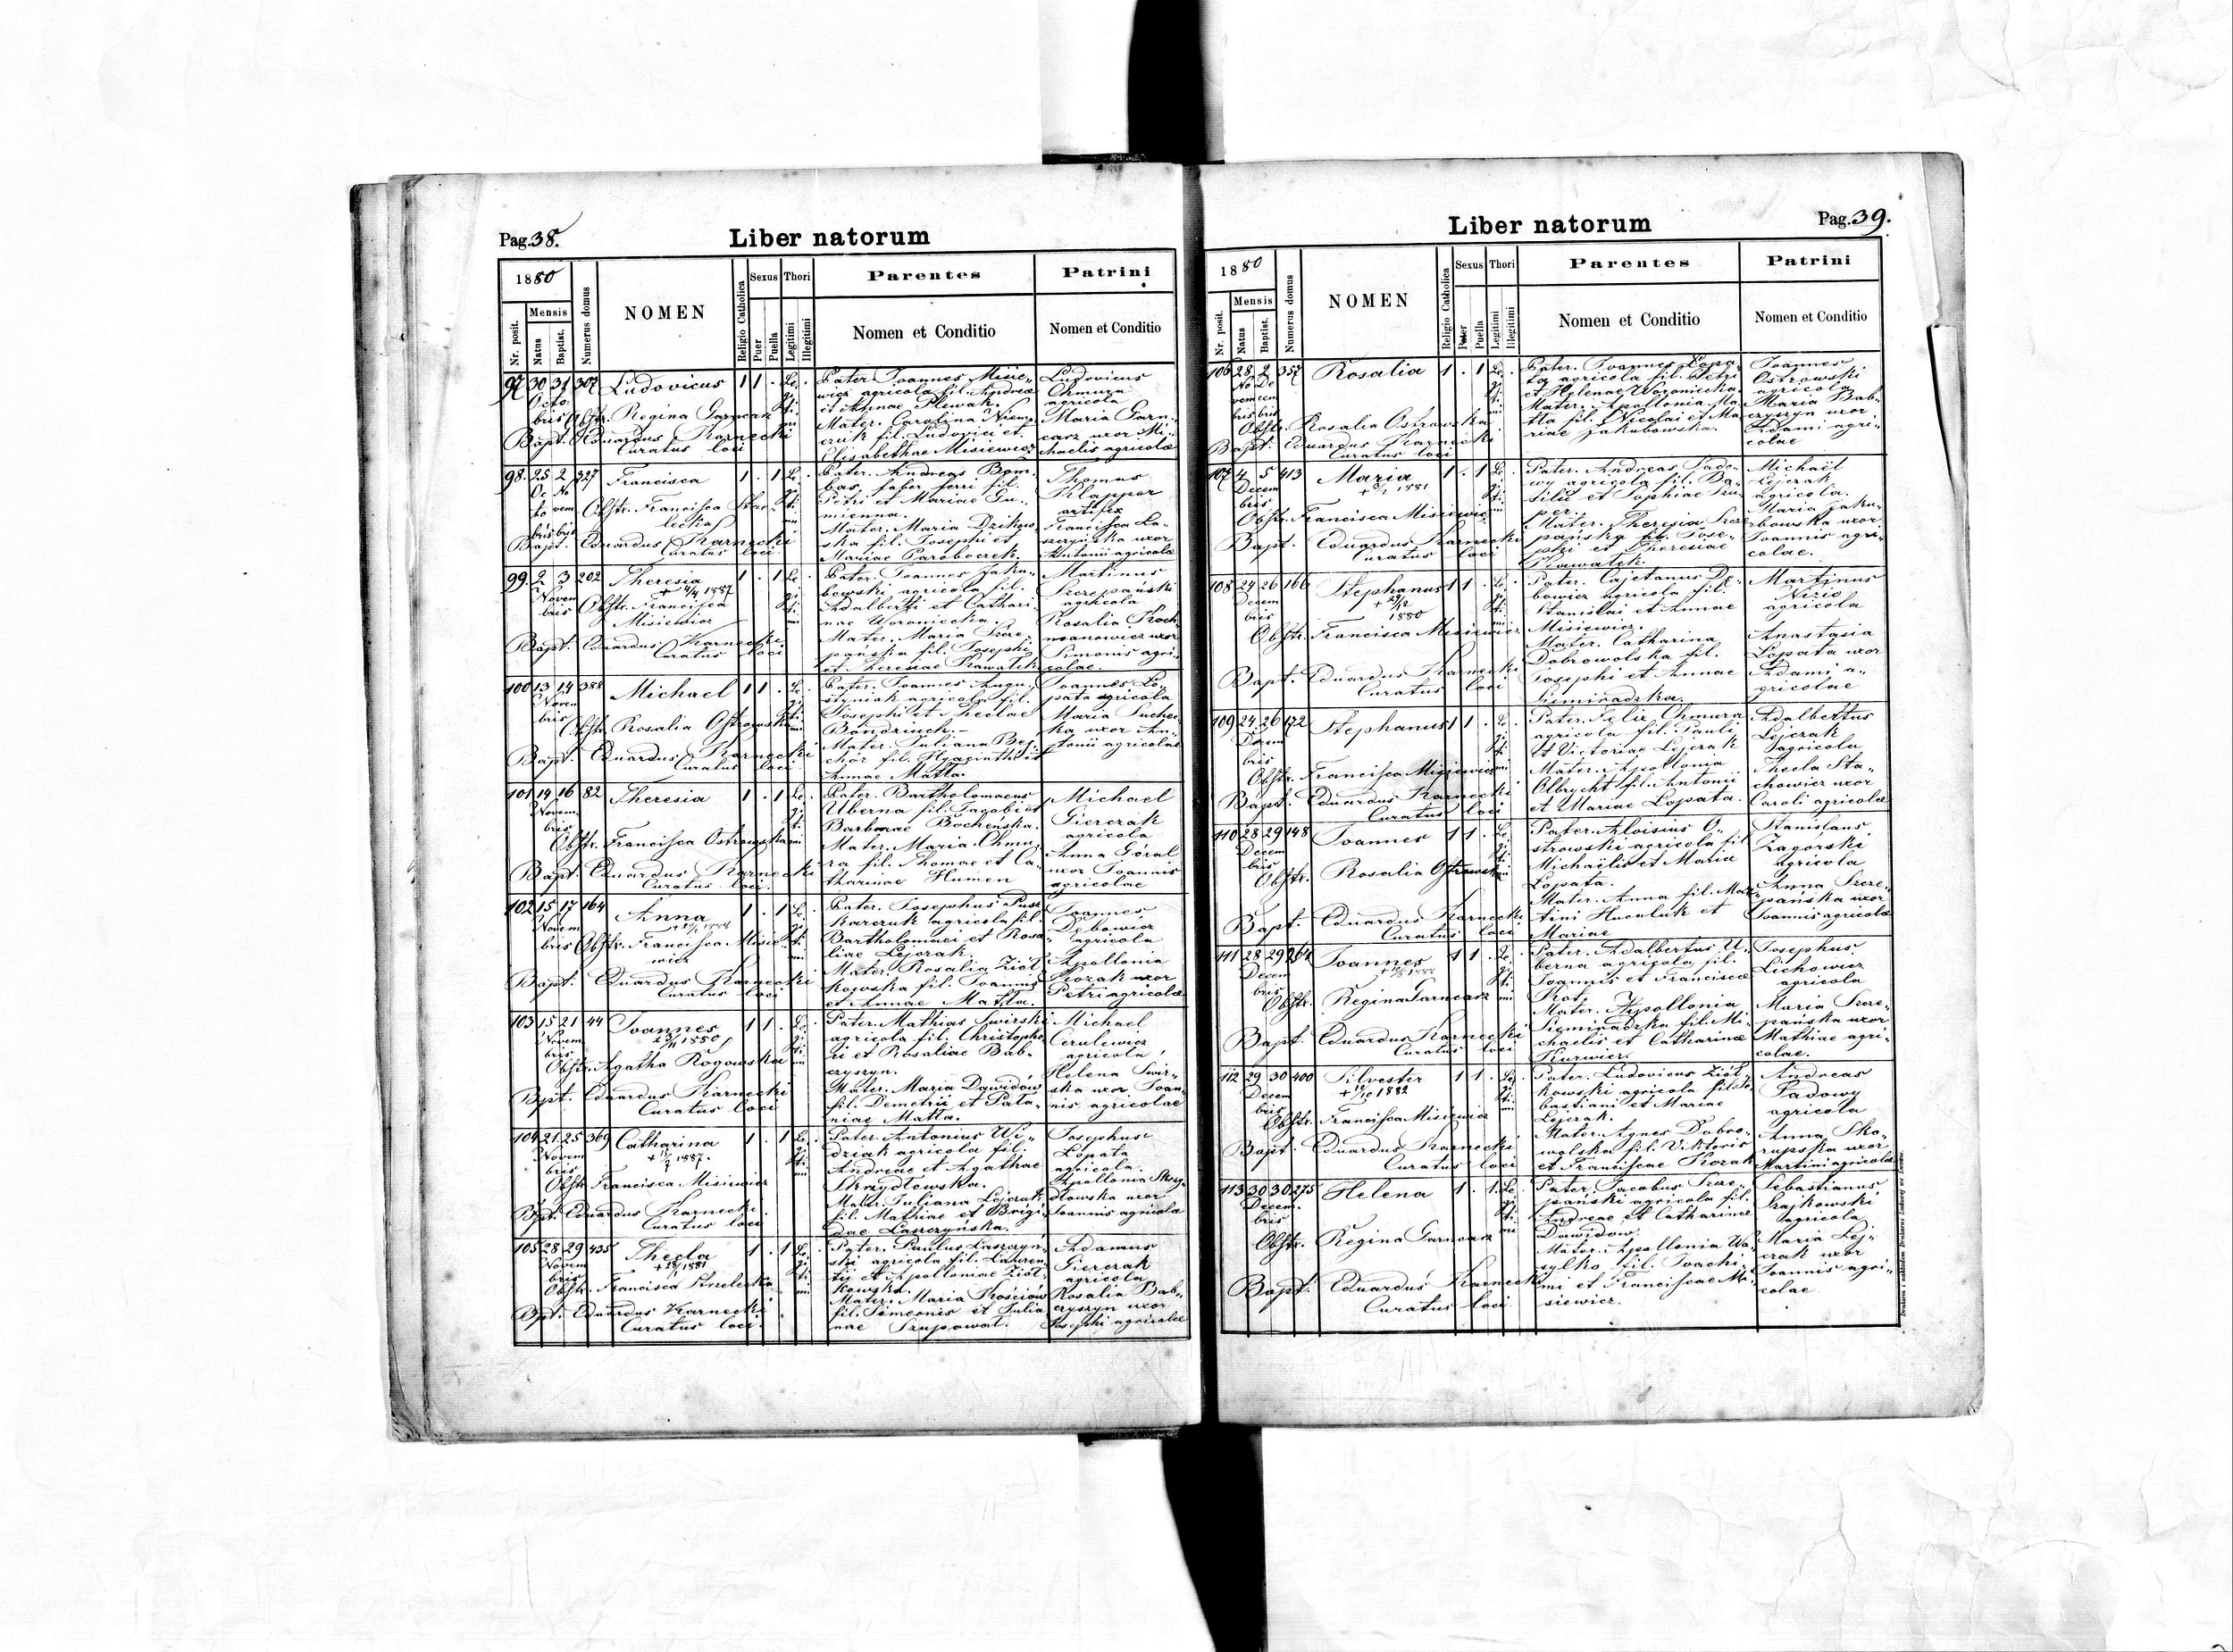 Pag. 38.
Liber natorum
1880
Nr. posit.
Mensis
Natus
Baptist.
Numerus domus
NOMEN
Religio Catholica
Sexus
Puer
Puella
Thori
Legitimi
Illegitimi
Parentes
Nomen et Conditio
Patrini
Nomen et Conditio
97 30 31 307 Ludovicus 1 1 . Le
Octo
bris
gi
ti
mi
Obstr. Regina Garncarz
Bapt. Eduardus Karnecki
Curatus loci
Pater. Joannes Misie„
wicz agricola fil. Andreae
et Annae Plewak.
Mater. Carolina Niem„
czuk fil. Ludovici et
Elisabethae Misiewicz
Ludovicus
Chmura
agricola
Maria Garn„
carz uxor Mi„
chaelis agricolae
98. 25 2 327 Francisca 1 . 1 Le
Obstr. Francisca Strze„
lecka
Bapt. Eduardus Karnecki
Curatus loci
Pater. Andreas Bom„
bas, faber ferri fil.
Petri et Mariae Gu„
mienna.
Mater. Maria Dzikow„
ska fil. Josephi et
Mariae Paroboczek.
Thomas
Klapper
artifex
Francisca La„
szczyńska uxor
Antonii agricolae
99. 2 3 202 Theresia 1 . 1 Le
Novem
bris
Obstr. Francisca
Misiewicz
Bapt. Eduardus Karnecki
Curatus loci
Pater. Joannes Jaku„
bowski agricola fil.
Adalberti et Cathari„
nae Woroniecka.
Mater. Maria Szcze„
pańska fil. Josephi
et Theresiae Kawalek.
Martinus
Szczepański
agricola
Rosalia Koch„
manowicz uxor
Simonis agri„
colae.
100 13 14 388 Michael 1 1 . Le
Novem
bris
Obstr. Rosalia Ostrowska
Bapt. Eduardus Karnecki
Curatus loci
Pater. Joannes Augu„
styniak agricola fil.
Josephi et Theclae
Bondziuch.
Mater. Juliana Bej„
chór fil. Hyacinthi et
Annae Matla.
Joannes Lo„
pata agricola
Maria Suchec„
ka uxor An„
tonii agricolae
101 14 16 82 Theresia 1 . 1 Le
Novem
bris
Obstr. Francisca Ostrowska
Bapt. Eduardus Karnecki
Curatus loci.
Pater. Bartholomaeus
Uberna fil. Jacobi et
Barbarae Bocheńska.
Mater. Maria Chmu„
ra fil. Thomae et Ca„
tharinae Humen
Michael
Gierczak
agricola
Anna Góral
uxor Joannis
agricolae
102 15 17 164 Anna 1 . 1 Le
Novem
bris
Obstr. Francisca Misie„
wicz
Bapt. Eduardus Karnecki
Curatus loci
Pater. Josephus Pusz„
karczuk agricola fil
Bartholomaei et Rosa„
liae Lejczak.
Mater. Rosalia Ziół„
kowska fil. Joannis
et Annae Matla.
Joannes
Debowicz
agricola
Apollonia
Kozak uxor
Petri agricolae
103 15 21 44 Joannes 1 1 . Le
Novem
bris
Obstr. Agatha Rogowska
Bpt. Eduardus Karnecki
Curatus loci
Pater. Mathias Swirski
agricola fil. Christopho„
ri et Rosaliae Bab„
czyszyn.
Mater. Maria Dawidów
fil. Demetrii et Pala„
niae Matla.
Michael
Cerulewicz
agricola
Helena Swir„
ska uxor Joan„
nis agricolae
104 21 25 369 Catharina 1 . 1 Le
Novem
bris
Obstr. Francisca Misiewicz
Bpt. Eduardus Karnecki
Curatus loci
Pater. Antonius Wi„
dziak agricola fil.
Andreae et Agathae
Skrzydłowska.
Mater. Juliana Lejczak
fil. Mathiae et Brigi„
dae Laszczyńska.
Josephus
Lopata
agricola.
Apollonia Skrzy„
dłowska uxor
Joannis agricolae
105 28 29 435 Thecla 1 . 1 Le
Novem
bris
Obstr. Francisca Strzelecka
Bpt. Eduardus Karnecki
Curatus loci.
Pater. Paulus Laszczyń„
ski agricola fil. Lauren„
tii et Apolloniae Ziół„
kowska.
Mater. Maria Kościów
fil. Simeonis et Julia„
nae Szupował.
Adamus
Gierczak
agricola
Rosalia Bab„
czyszyn uxor
Josephi agricolae
Liber natorum
Pag. 39.
1880
Nr. posit.
Mensis
Natus
Baptist.
Numerus domus
NOMEN
Religio Catholica
Sexus
Puer
Puella
Thori
Legitimi
Illegitimi
Parentes
Nomen et Conditio
Patrini
Nomen et Conditio
106 28 2 357 Rosalia 1 . 1 Le
Obstr. Rosalia Ostrowska
Bapt. Eduardus Karnecki
Curatus loci
Pater. Joannes Lopa„
ta agricola fil. Petri
et Helenae Woroniecka.
Mater. Apollonia Ma„
tla fil. Nicolai et Ma„
riae Jakubowska.
Joannes
Ostrowski
agricola
Maria Bab„
czyszyn uxor
Adami agri„
colae
107 4 5 413 Maria 1 . 1 Le
Decem
bris
Obstr. Francisca Misiewicz
Bapt. Eduardus Karnecki
Curatus loci
Pater. Andreas Sado„
wy agricola fil. Ba„
silii et Sophiae
Mater. Theresia Szcze„
pańska fil. Jose„
phi et Theresiae
Kawalek
Michael
Lejczak
agricola.
Maria Jaku„
bowska uxor
Joannis agri„
colae.
108 24 26 166 Stephanus 1 1 . Le
Decem
bris
1880
Obstr. Francisca Misiewicz
Bapt. Eduardus Karnecki
Curatus loci
Pater. Cajetanus De„
bowicz agricola fil.
Stanislai et Annae
Misiewicz.
Mater. Catharina
Dobrowolska fil.
Josephi et Annae
Siemiradzka.
Martinus
Nizio
agricola
Anastasia
Lopata uxor
Adami a„
gricolae
109 24 26 172 Stephanus 1 1 . Le
Decem
bris
Obstr. Francisca Misiewicz
Bapt. Eduardus Karnecki
Curatus loci
Pater. Felix Chmura
agricola fil. Pauli
et Victoriae Lejczak
Mater. Apollonia
Olbrycht fil. Antonii
et Mariae Lopata.
Adalbertus
Lejczak
agricola
Thecla Sta„
chowicz uxor
Caroli agricolae
110 28 29 148 Joannes 1 1 . Le
Decem
bris
Obstr. Rosalia Ostrowska
Bapt. Eduardus Karnecki
Curatus loci
Pater. Aloisius O„
strowski agricola fil
Michaëlis et Maria
Lopata.
Mater. Anna fil. Mar„
tini Huculuk et
Mariae
Stanislaus
Zagórski
agricola
Anna Szcze„
pańska uxor
Joannis agricolae
111 28 29 264 Joannes 1 1 . Le
Decem
bris
Obstr. Regina Garncarz
Bapt. Eduardus Karnecki
Curatus loci
Pater. Adalbertus U„
berna agricola fil.
Joannis et Franciscae
Kot.
Mater. Apollonia
Siemiradzka fil. Mi„
chaelis et Catharinae
Kurwicz.
Josephus
Lichowicz
agricola
Maria Szcze„
pańska uxor
Mathiae agri„
colae.
112 29 30 400 Silvester 1 1 . Le
Decem
bris
Obstr. Francisca Misiewicz
Bapt. Eduardus Karnecki
Curatus loci
Pater. Ludovicus Ziół„
kowski agricola fil. Se„
bastiani et Mariae
Lejczak.
Mater. Agnes Dobro„
wolska fil. Viktoris
et Franciscae Kozak
Andreas
Sadowy
agricola
Anna Sko„
rupska uxor
Martini agricolae
113 30 30 275 Helena 1 . 1 Le
Decem.
bris
Obstr. Regina Garncarz
Bapt. Eduardus Karnecki
Curatus loci
Pater. Jacobus Szcze„
pański agricola fil.
Andreae et Catharinae
Dawidów.
Mater. Apollonia Wa„
sylko fil. Joachi„
mi et Franciscae Mi„
siewicz.
Sebastianus
Szajkowski
agricola
Maria Lej„
czak uxor
Joannis agri„
colae